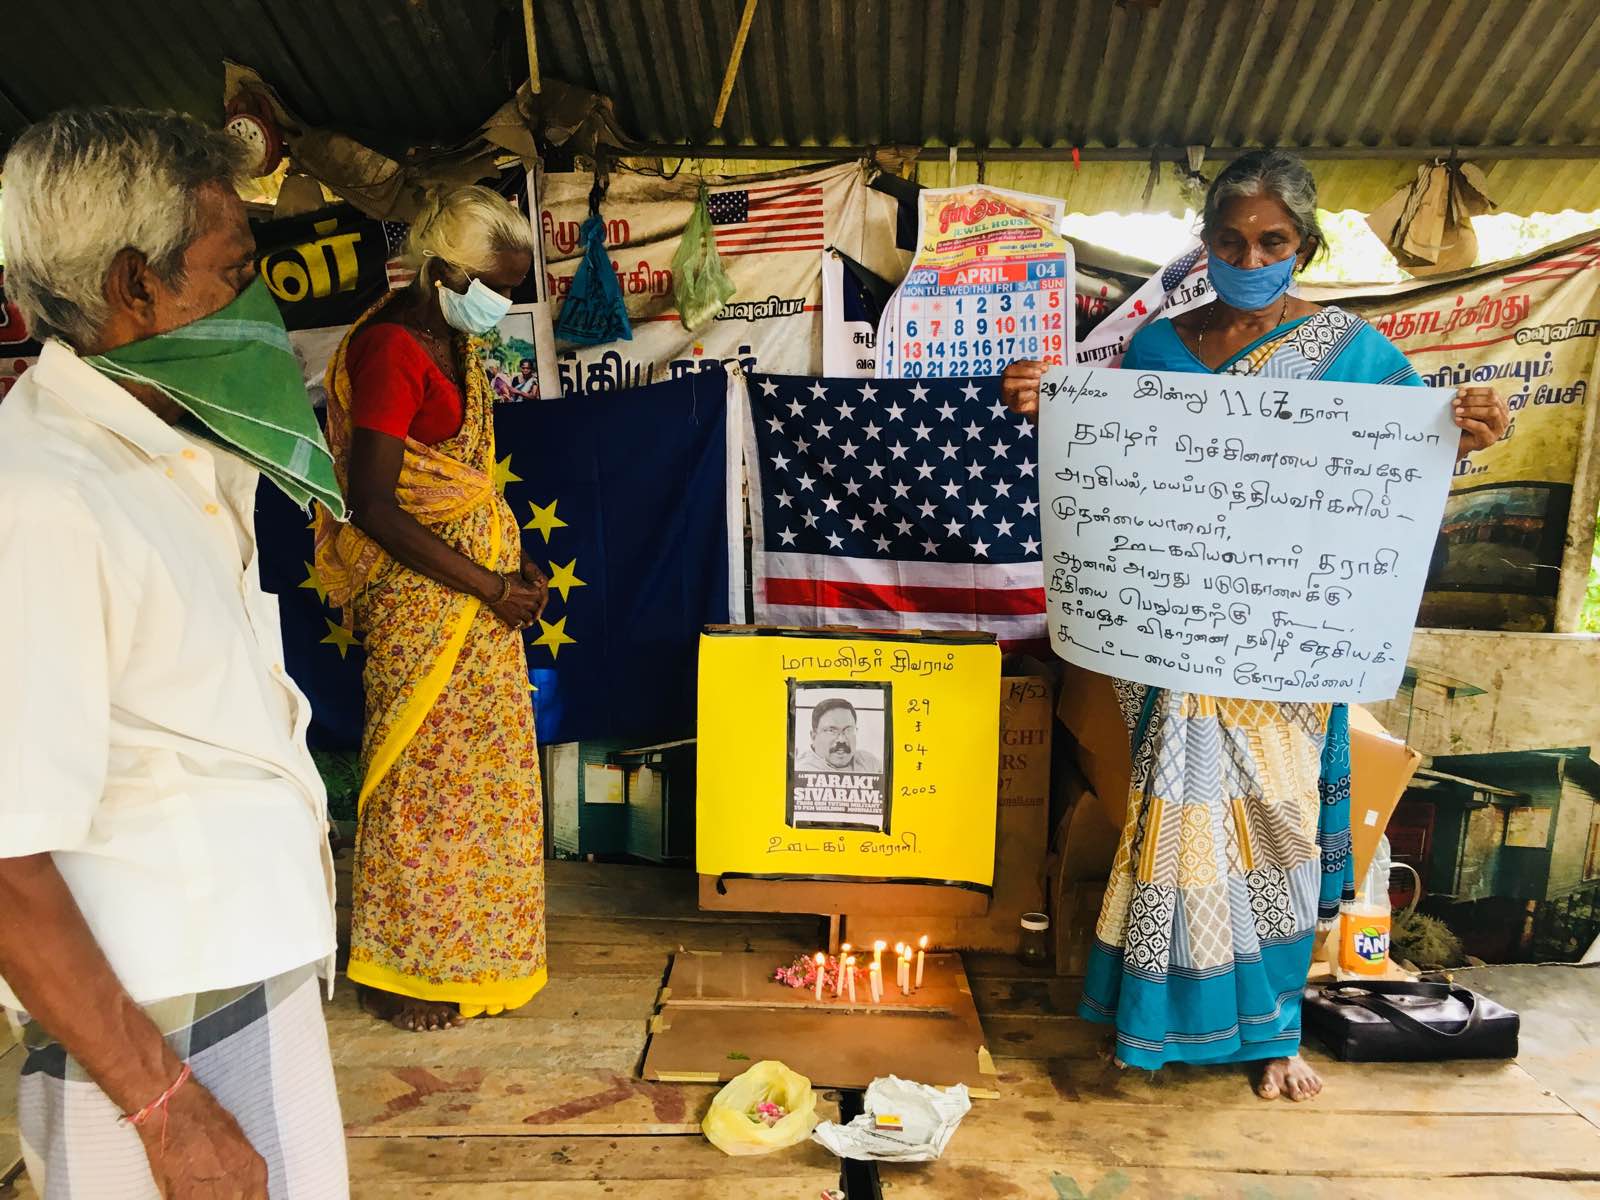 ள்
சிமுறை
தொடர்கிற
வவுனியா
JEWEL HOUSE
2020 APRIL 04
MON TUE WED THU FRI SAT SUN
1 2 3 4 5
6 7 8 9 10 11 12
13 14 15 16 17 18 19
20 21 22 23
தொடர்கிறது
வவுனியா
29/04/2020 இன்று 1167 நாள்
வவுனியா
தமிழர் பிரச்சினையை சர்வதேச
அரசியல், மயப்படுத்தியவர்களில் -
முதன்மையானவர்,
ஊடகவியலாளர் தராகி.
ஆனால் அவரது படுகொலைக்கு
நீதியை பெறுவதற்கு கூட,
சர்வதேச விசாரணை தமிழ் தேசியக் -
கூட்டமைப்பார் கோரவில்லை!
மாமனிதர் சிவராம்
29
04
2005
"TARAKI"
SIVARAM:
FROM GUN TOTING MILITANT
TO PEN WIELDING JOURNALIST
ஊடகப் போராளி.
K/52
GHT
RS
97
FANTA